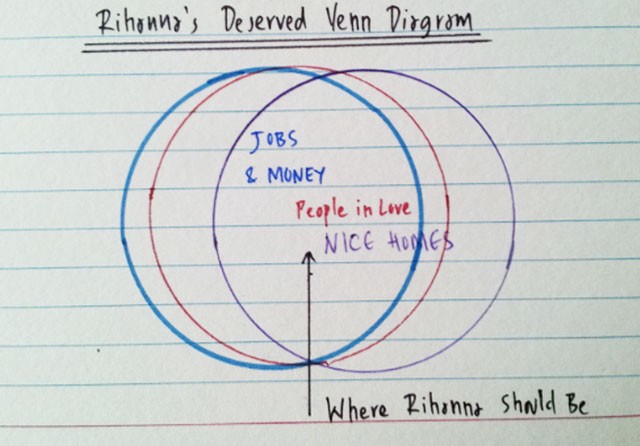 Rihanna's Deserved Venn Diagram
JOBS
& MONEY
People in Love
NICE HOMES
Where Rihanna Should Be